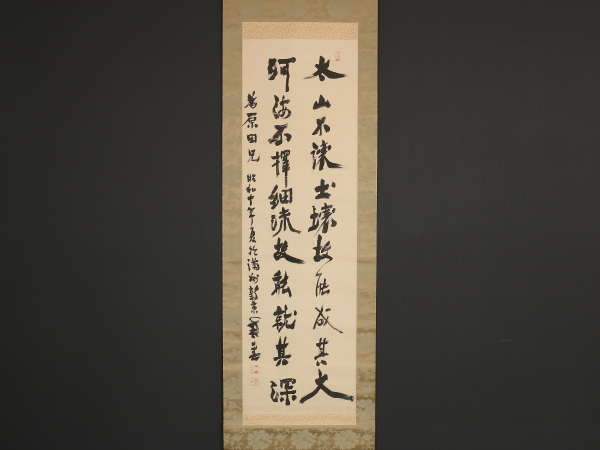 太山不讓土壤故能成其大
河海不擇細流故能就其深
為原田兄 昭和十年夏於滿州新京